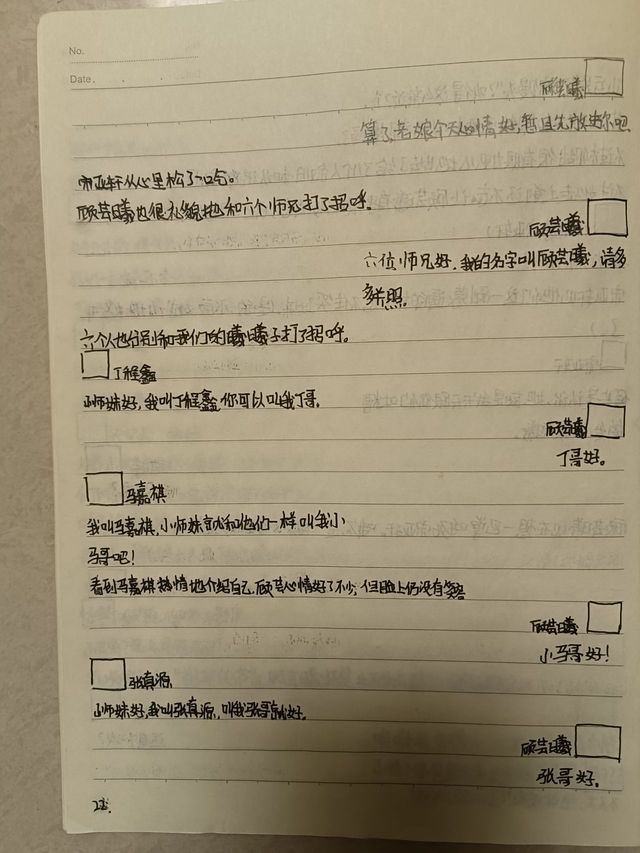 No.
Date.
顾芸曦
算了, 老娘今天心情好, 暂且先放过你吧
宋亚轩从心里松了一口气。
顾芸曦也很礼貌地和六个师兄打了招呼。
顾芸曦
六位师兄好, 我的名字叫顾芸曦, 请多
多关照。
六个人也分别和我们的曦曦子打了招呼。
丁程鑫
小师妹好, 我叫丁程鑫, 你可以叫我丁哥。
顾芸曦
丁哥好。
马嘉祺
我叫马嘉祺, 小师妹就和他们一样叫我小
马哥吧!
看到马嘉祺热情地介绍自己, 顾芸心情好了不少, 但脸上仍没有笑容
顾芸曦
小马哥好!
张真源
小师妹好, 我叫张真源, 叫我张哥就好。
顾芸曦
张哥好。